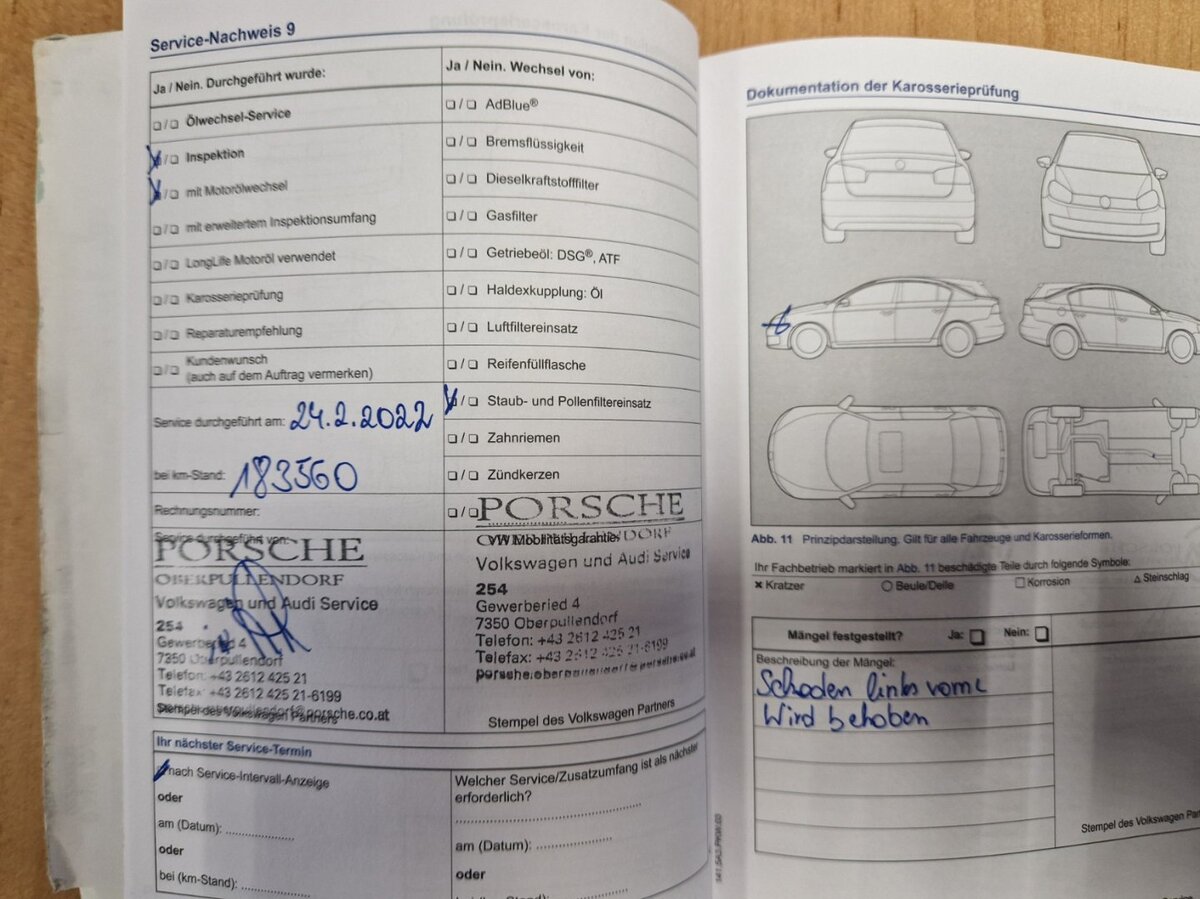 Service-Nachweis 9
Ja / Nein. Durchgeführt wurde:
❏/❏ Ölwechsel-Service
❏/❏ Inspektion
❏/❏ mit Motorölwechsel
❏/❏ mit erweitertem Inspektionsumfang
❏/❏ LongLife Motoröl verwendet
❏/❏ Karosserieprüfung
❏/❏ Reparaturempfehlung
❏/❏ Kundenwunsch
(auch auf dem Auftrag vermerken)
Service durchgeführt am: 24.2.2022
bei km-Stand: 183560
Rechnungsnummer:
Service durchgeführt von:
PORSCHE
OBERPULLENDORF
Volkswagen und Audi Service
254
Gewerberied 4
7350 Oberpullendorf
Telefon: +43 2612 425 21
Telefax: +43 2612 425 21-6199
Stempel des Volkswagen Partners
Ja / Nein. Wechsel von:
❏/❏ AdBlue®
❏/❏ Bremsflüssigkeit
❏/❏ Dieselkraftstofffilter
❏/❏ Gasfilter
❏/❏ Getriebeöl: DSG®, ATF
❏/❏ Haldexkupplung: Öl
❏/❏ Luftfiltereinsatz
❏/❏ Reifenfüllflasche
❏/❏ Staub- und Pollenfiltereinsatz
❏/❏ Zahnriemen
❏/❏ Zündkerzen
❏/❏
PORSCHE
VW Mobilitätsgarantie
Volkswagen und Audi Service
254
Gewerberied 4
7350 Oberpullendorf
Telefon: +43 2612 425 21
Telefax: +43 2612 425 21-6199
Stempel des Volkswagen Partners
Ihr nächster Service-Termin
nach Service-Intervall-Anzeige
oder
am (Datum):
oder
bei (km-Stand):
Welcher Service/Zusatzumfang ist als nächster
erforderlich?
am (Datum):
oder
Dokumentation der Karosserieprüfung
Abb. 11 Prinzipdarstellung. Gilt für alle Fahrzeuge und Karosserieformen.
Ihr Fachbetrieb markiert in Abb. 11 beschädigte Teile durch folgende Symbole:
✖ Kratzer ○ Beule/Delle □ Korrosion △ Steinschlag
Mängel festgestellt? Ja: ❏ Nein: ❏
Beschreibung der Mängel:
Schaden links vorne
Wird behoben
Stempel des Volkswagen